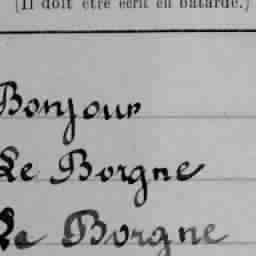 (Il doit être écrit en bâtarde.)
Bonjour
Le Borgne
Le Borgne